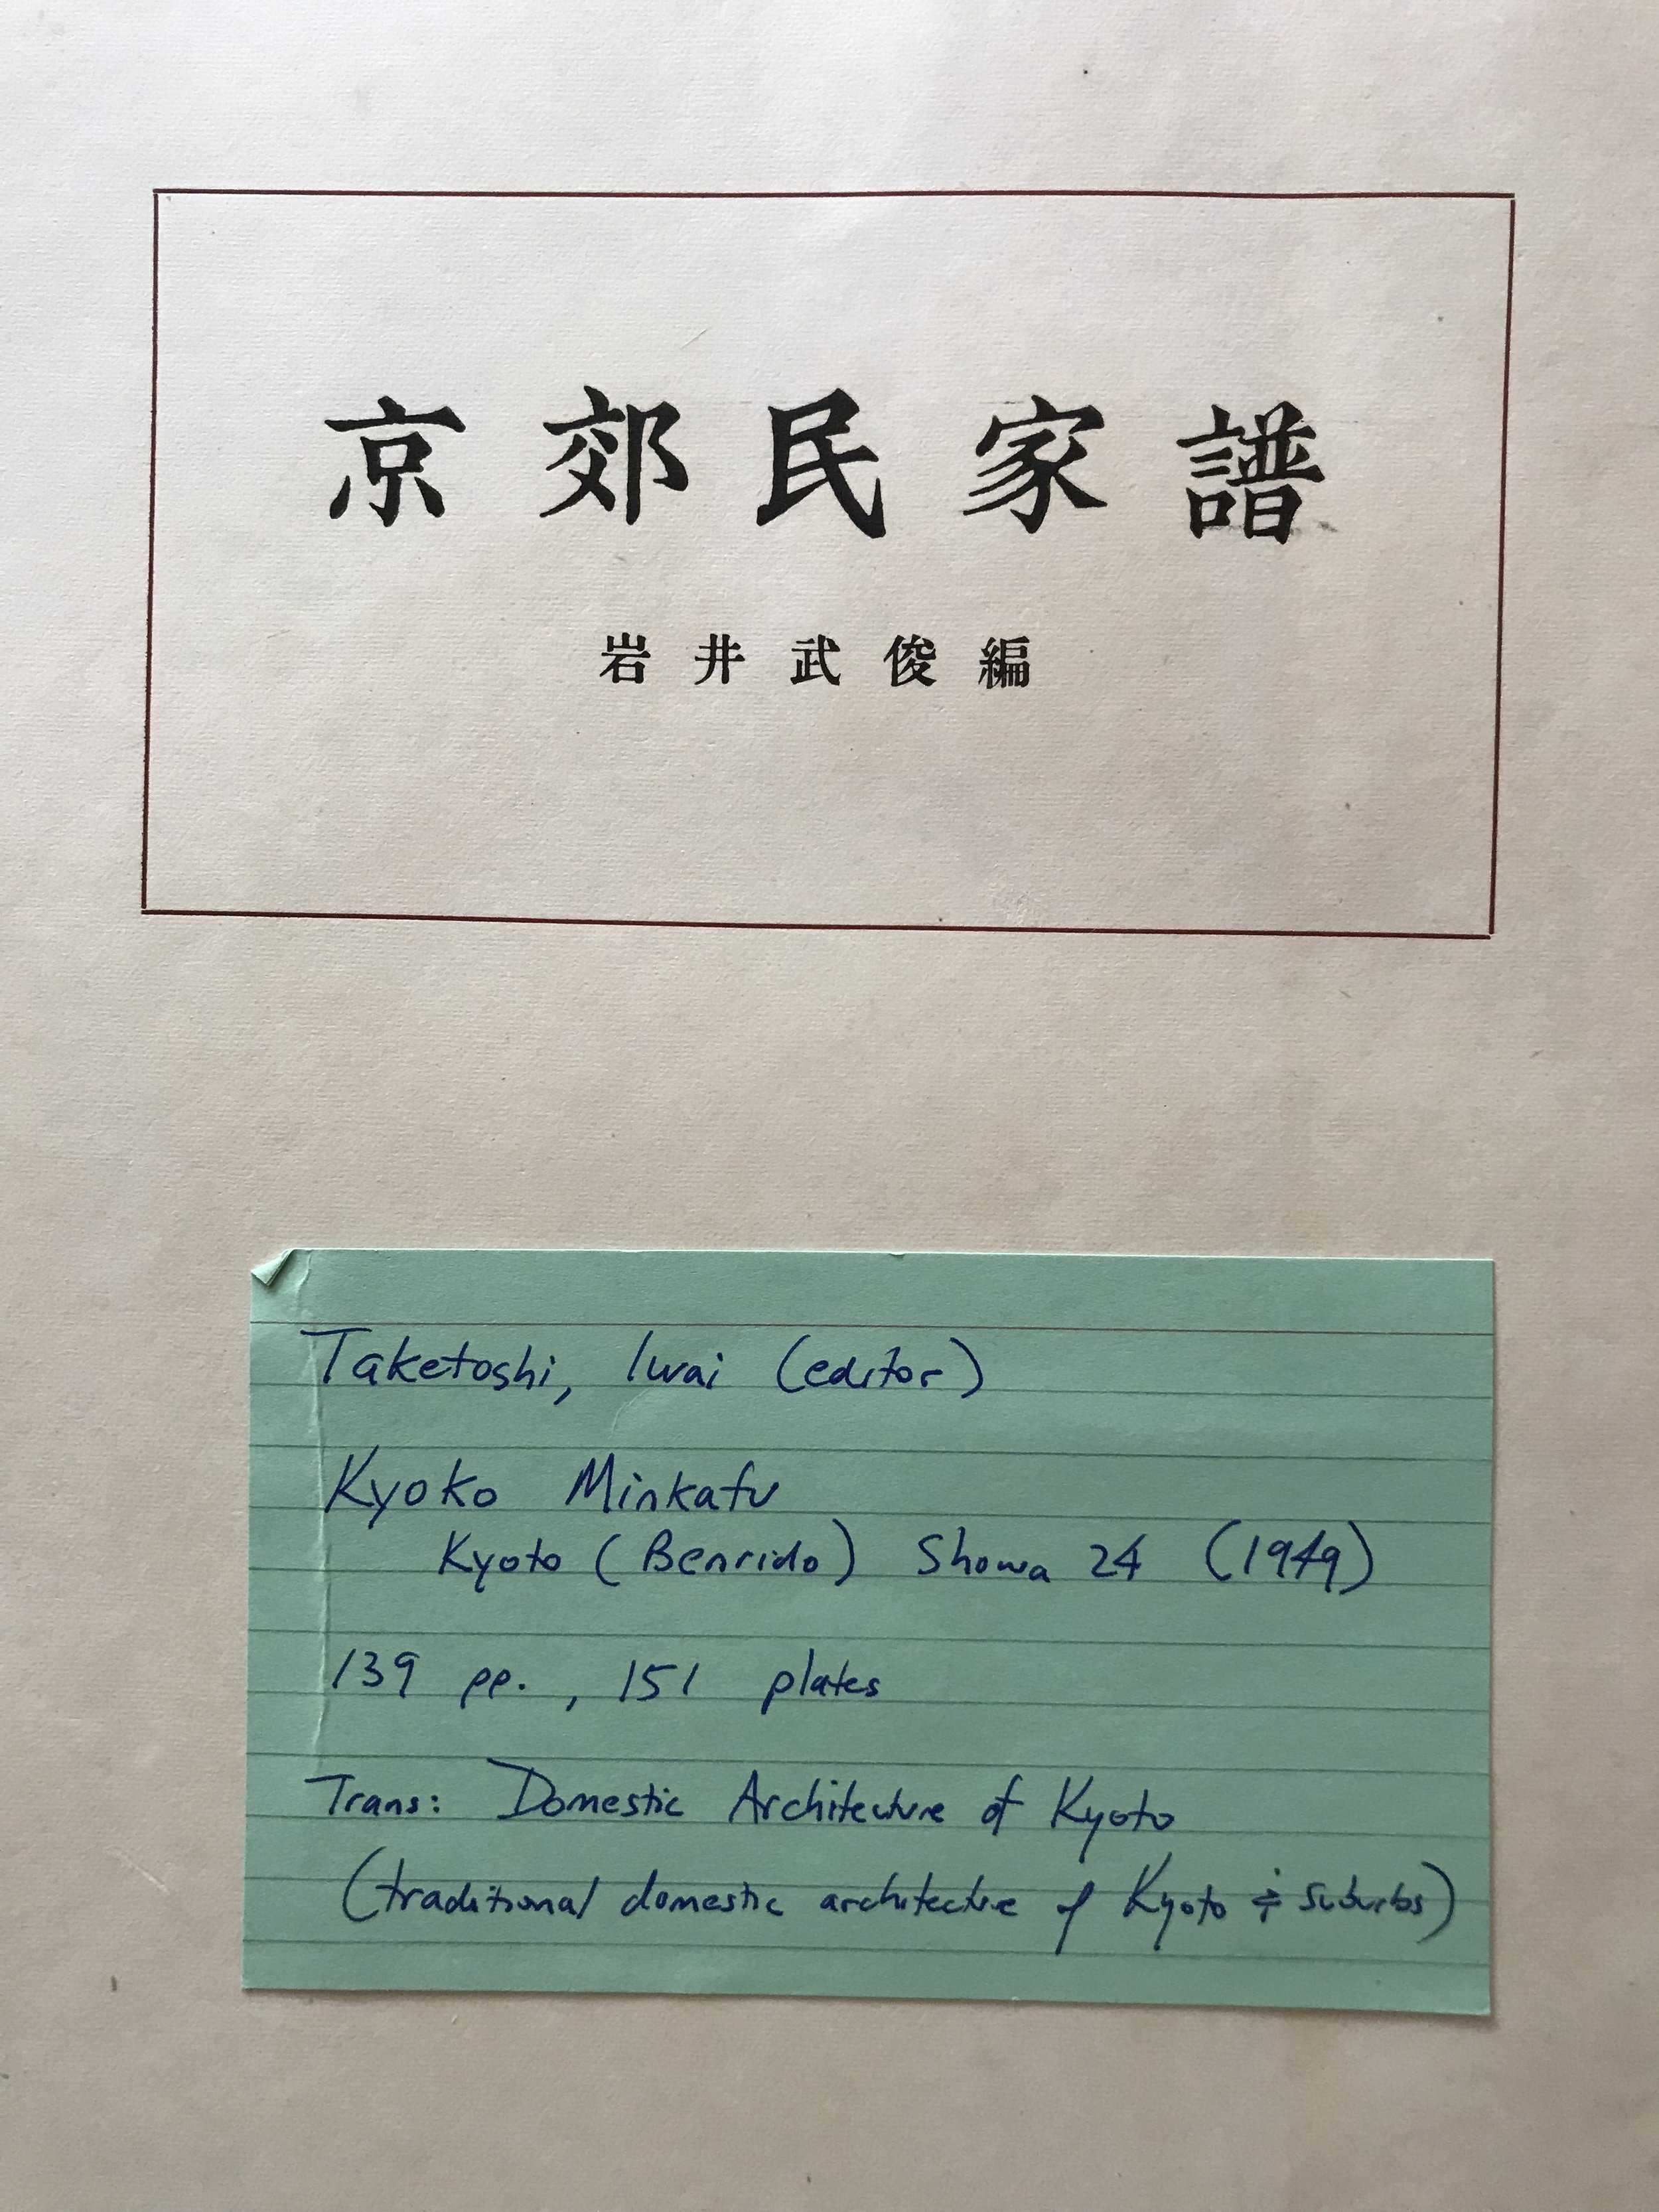 京郊民家譜
岩井武俊編
Taketoshi, Iwai (editor)
Kyoko Minkafu
Kyoto (Benrido) Showa 24 (1949)
139 pp., 151 plates
Trans: Domestic Architecture of Kyoto
(traditional domestic architecture of Kyoto & suburbs)